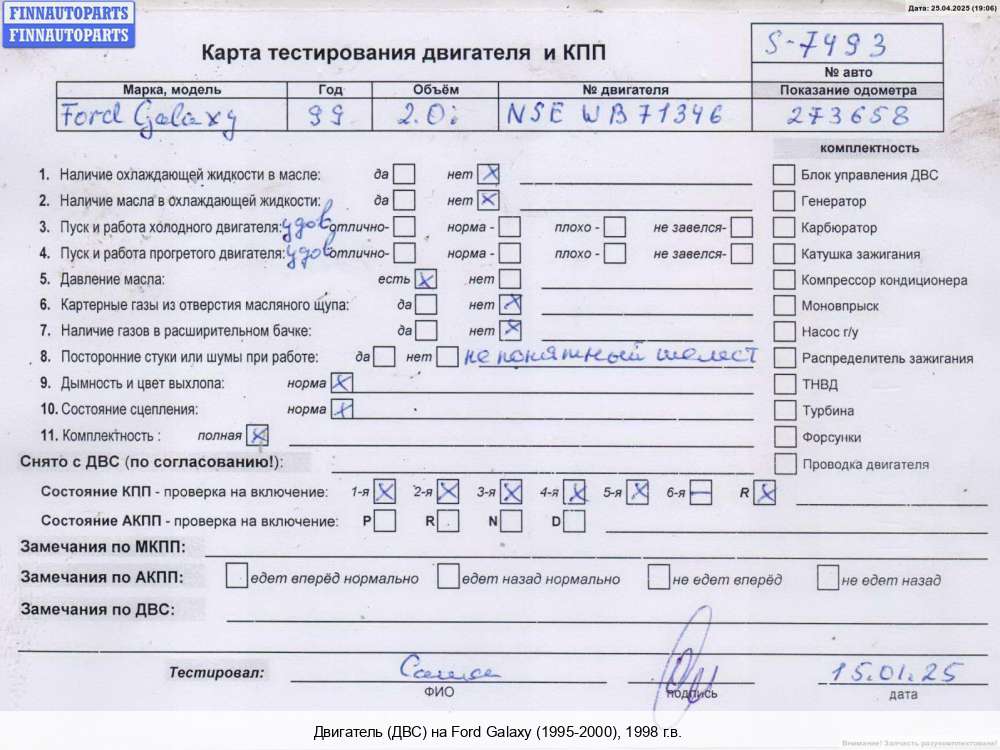 FINNAUTOPARTS
FINNAUTOPARTS
Дата: 25.04.2025 (19:06)
Карта тестирования двигателя и КПП
S-7493
№ авто
Марка, модель Год Объём № двигателя Показание одометра
Ford Galaxy 99 2.0i NSE WB71346 273658
комплектность
1. Наличие охлаждающей жидкости в масле: да нет X Блок управления ДВС
2. Наличие масла в охлаждающей жидкости: да нет X Генератор
3. Пуск и работа холодного двигателя: удов отлично- норма - плохо - не завелся- Карбюратор
4. Пуск и работа прогретого двигателя: удов отлично- норма - плохо - не завелся- Катушка зажигания
5. Давление масла: есть X нет Компрессор кондиционера
6. Картерные газы из отверстия масляного щупа: да нет X Моновпрыск
7. Наличие газов в расширительном бачке: да нет X Насос г/у
8. Посторонние стуки или шумы при работе: да нет не понятный шелест Распределитель зажигания
9. Дымность и цвет выхлопа: норма X ТНВД
10. Состояние сцепления: норма X Турбина
11. Комплектность : полная X Форсунки
Снято с ДВС (по согласованию!): Проводка двигателя
Состояние КПП - проверка на включение: 1-я X 2-я X 3-я X 4-я X 5-я X 6-я — R X
Состояние АКПП - проверка на включение: P R N D
Замечания по МКПП:
Замечания по АКПП: едет вперёд нормально едет назад нормально не едет вперёд не едет назад
Замечания по ДВС:
Тестировал: Саша 15.01.25
ФИО подпись дата
Двигатель (ДВС) на Ford Galaxy (1995-2000), 1998 г.в.
Внимание! Запчасть разукомплектована!